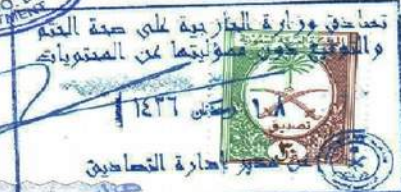 تصادق وزارة الخارجية على صحة الختم
والتوقيع دون مسؤليتها عن المحتويات
١٤٣٦
تصديق
٣٠
عن مدير إدارة التصاديق
MENT